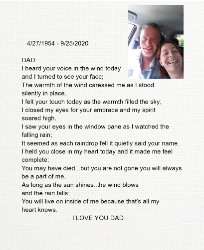 4/27/1954 - 9/25/2020
DAD
I heard your voice in the wind today
and I turned to see your face;
The warmth of the wind caressed me as I stood
silently in place.
I felt your touch today as the warmth filled the sky;
I closed my eyes for your embrace and my spirit
soared high.
I saw your eyes in the window pane as I watched the
falling rain;
It seemed as each raindrop fell it quietly said your name.
I held you close in my heart today and it made me feel
complete;
You may have died...but you are not gone you will always
be a part of me.
As long as the sun shines..the wind blows
and the rain falls
You will live on inside of me because that's all my
heart knows.
I LOVE YOU DAD